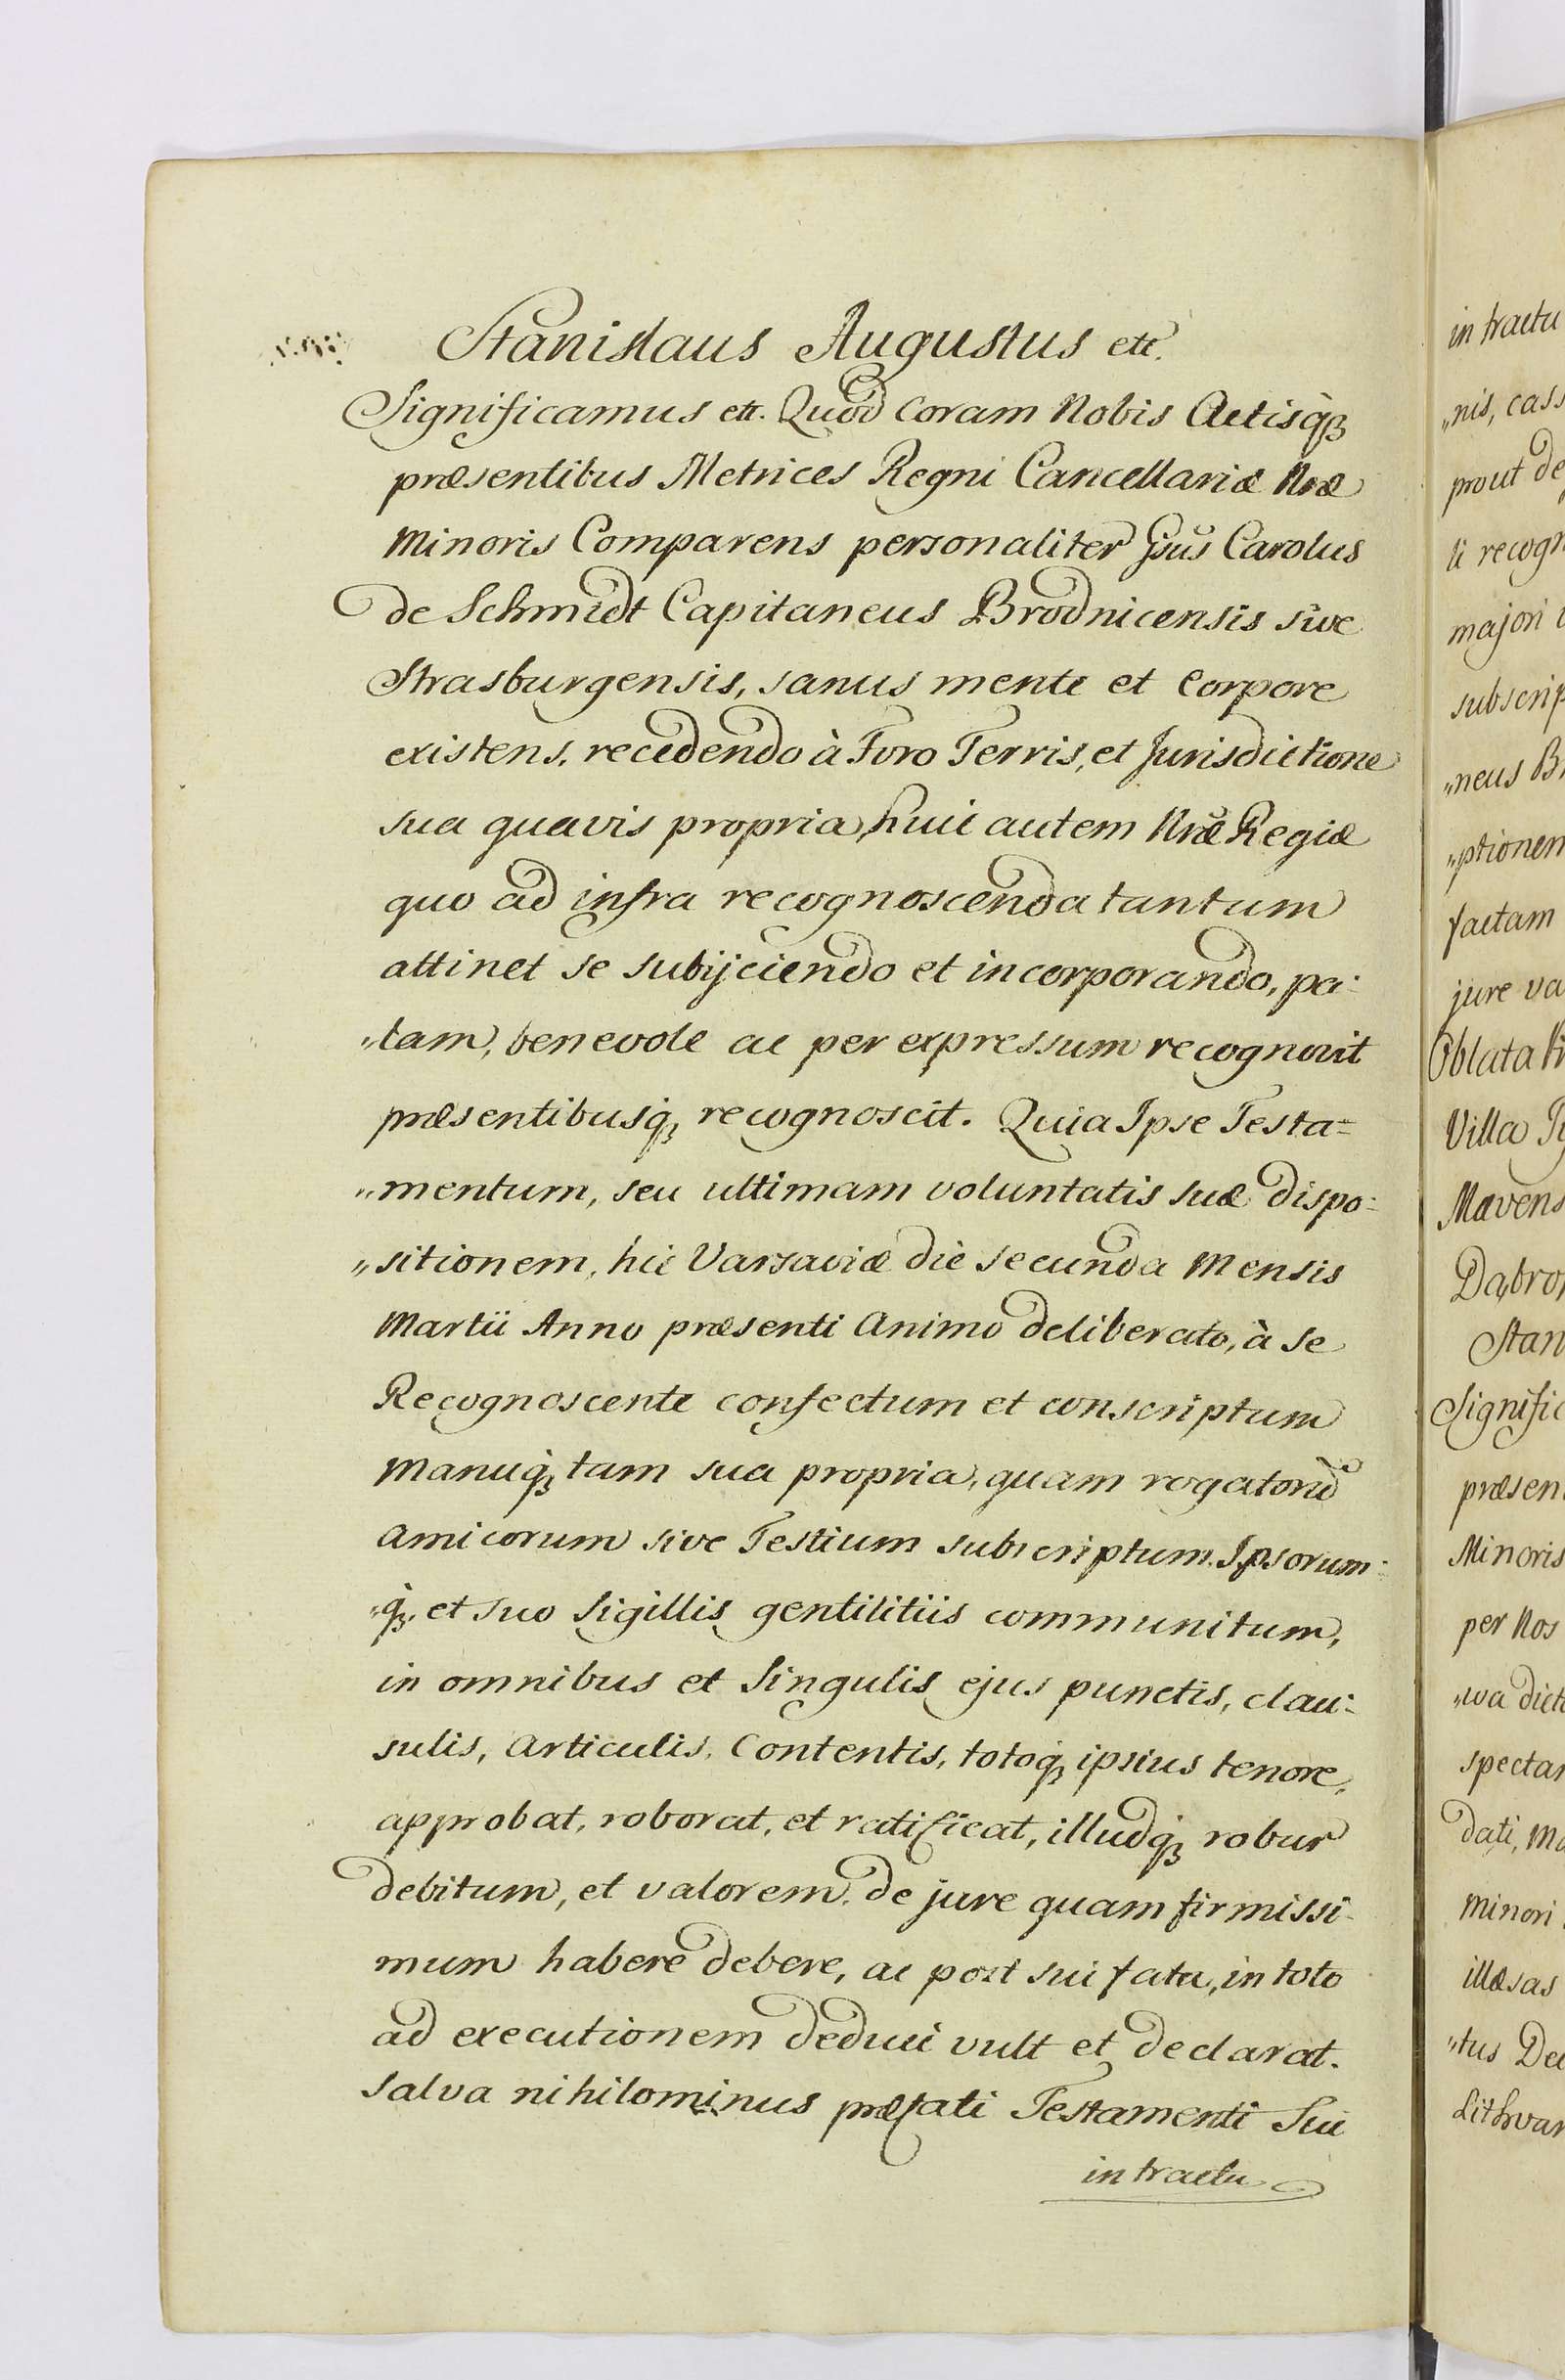 Stanislaus Augustus etc.
Significamus etc. Quod Coram Nobis Actisq́ꝫ
præsentibus Metrices Regni Cancellariæ Nræ
Minoris Comparens personaliter Gsus Carolus
de Schmidt Capitaneus Brodnicensis sive
Strasburgensis, sanus mente et Corpore
existens, recedendo à Foro Terris, et Jurisdictione
sua quavis propria, huic autem Nræ Regiæ
quo ad infra recognoscenda tantum
attinet se subijciendo et incorporando, pa:
„lam, benevole ac per expressum recognovit
præsentibusq́ꝫ recognoscit. Quia Ipse Testa=
„mentum, seu ultimam voluntatis suæ dispo:
„sitionem, hic Varsaviæ die secunda Mensis
Martii Anno præsenti Animo deliberato, à se
Recognoscente confectum et conscriptum
manuq́ꝫ tam sua propria, quam rogatorũ
amicorum sive Testium subscriptum. Ipsorum:
„q́ꝫ, et suo Sigillis gentilitiis communitum,
in omnibus et Singulis ejus punctis, clau:
sulis, Articulis, Contentis, totoq́ꝫ ipsius tenore,
approbat, roborat, et ratificat, illudq́ꝫ robur
debitum, et valorem de jure quam firmissi-
mum habere debere, ac post sui fata, in toto
ad executionem deduci vult et declarat.
Salva nihilominus præfati Testamenti Sui
in tractu
in tractu
„nis, cass
prout de
li recogn
majori
subscrip
„neus Br
„ptionem
factam
jure va
Oblata
Villa
Mævens
Dąbro
Stan
Signific
præsen
Minoris
per Nos
„wa dict
spectan
dati, Ma
minori
illæsas
„tus Dec
Lithvan